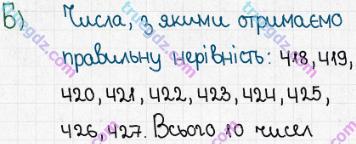 Б) Числа, з якими отримаємо
правильну нерівність: 418, 419,
420, 421, 422, 423, 424, 425,
426, 427. Всього 10 чисел